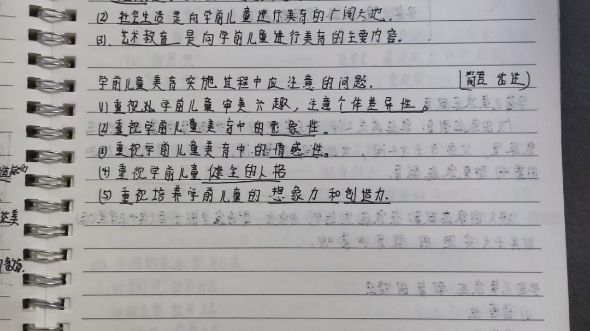 (2) 社会生活是向学前儿童进行美育的广阔天地.
(3). 艺术教育 是向学前儿童进行美育的主要内容.
学前儿童美育实施过程中应注意的问题. (简答 论述)
(1) 重视对学前儿童审美兴趣,注意个体差异性。
(2) 重视学前儿童美育中的形象性。
(3) 重视学前儿童美育中的情感性。
(4) 重视学前儿童健全的人格
(5) 重视培养学前儿童的想象力和创造力.